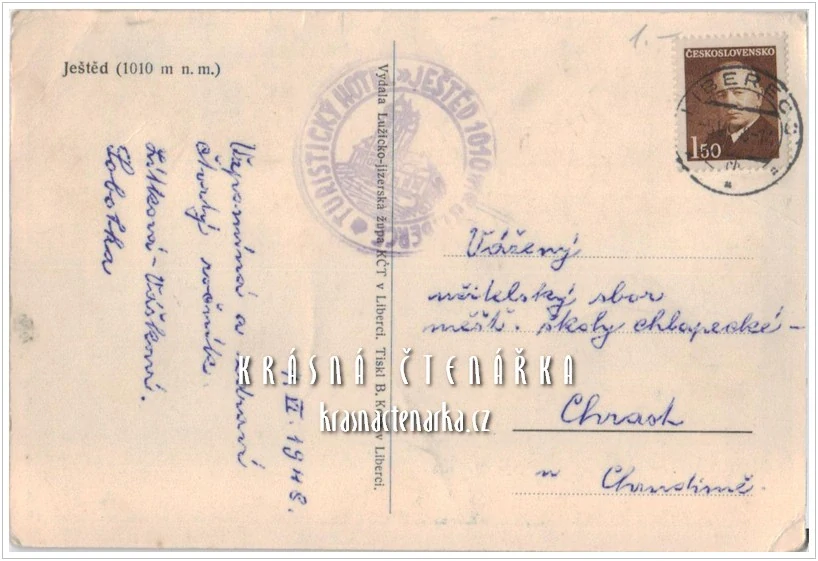 Ještěd (1010 m n. m.)
Vzpomíná a zdraví
čtvrtý ročník.
Litková - Vášková.
Sobotka
VI. 1948.
Vydala Lužicko-jizerská župa KČT v Liberci. Tiskl B. v Liberci.
TURISTICKÝ HOTEL JEŠTĚD 1010 m
1.-
ČESKOSLOVENSKO
1.50
Vážený
učitelský sbor
měšť. školy chlapecké -
Chrast
u Chrudimě.
KRÁSNÁ ČTENÁŘKA
krasnactenarka.cz